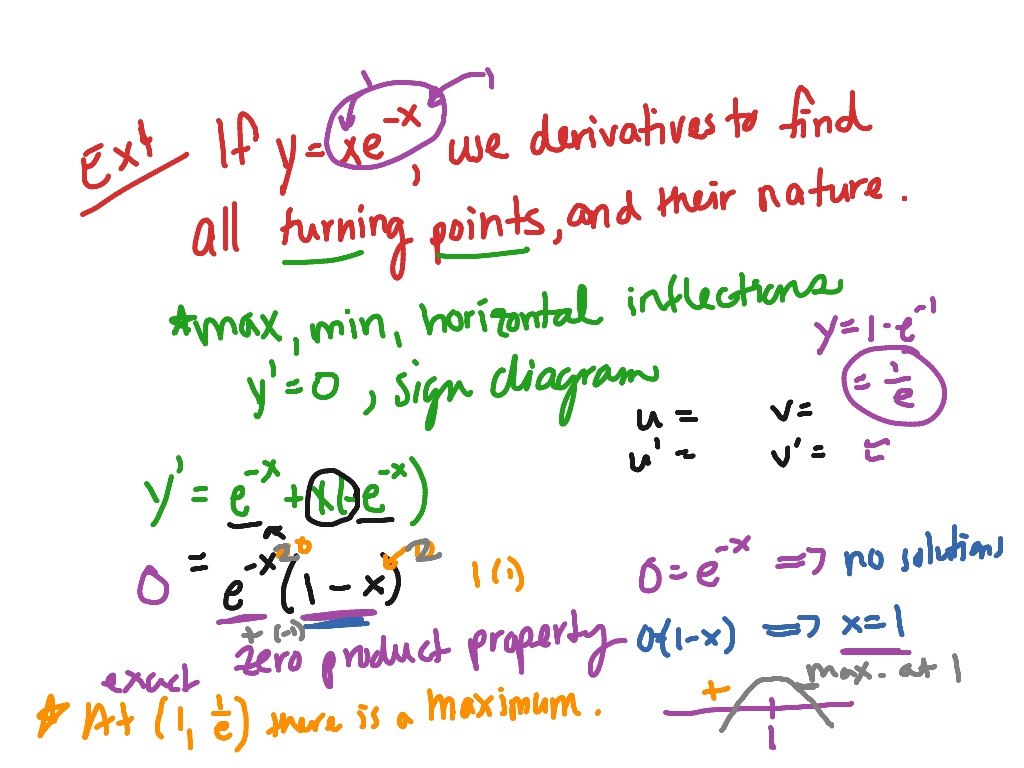 Ex 4 If y = xe^-x, use derivatives to find
all turning points, and their nature.
*max, min, horizontal inflections
y' = 0, sign diagram
y = 1 · e^-1
= 1/e
u = v =
u' = v' =
y' = e^-x + x(-e^-x)
0 = e^-x (1 - x)
2 0 0 2
1(1)
+ (-1)
0 = e^-x => no solutions
zero product property
0 = (1-x) => x = 1
exact
+ max. at 1
1
* At (1, 1/e) there is a maximum.